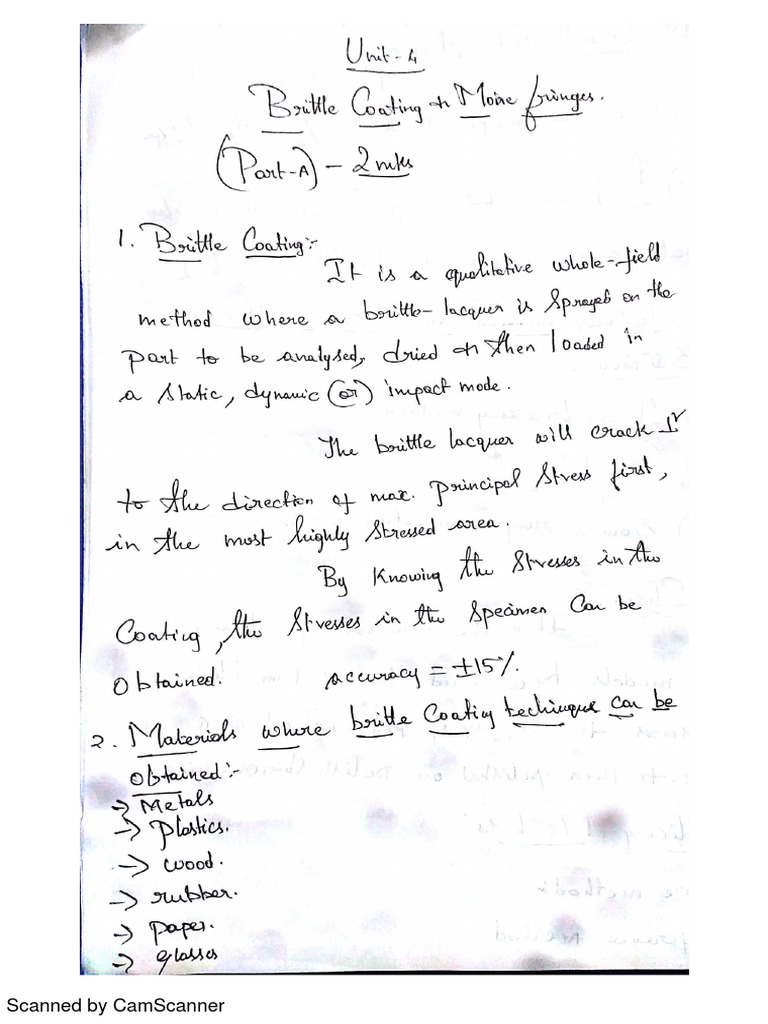 Unit-4
Brittle Coating & Moire fringes.
(Part-A) - 2mks
1. Brittle Coating:-
It is a qualitative whole-field
method where a brittle-lacquer is sprayed on the
part to be analysed, dried & then loaded in
a static, dynamic (or) impact mode.
The brittle lacquer will crack ⊥r
to the direction of max. principal stress first,
in the most highly stressed area.
By Knowing the stresses in the
Coating, the stresses in the specimen can be
Obtained. accuracy = ±15%.
2. Materials where brittle Coating technique can be
obtained:-
→ Metals
→ Plastics.
→ wood.
→ rubber.
→ paper.
→ glasses
Scanned by CamScanner